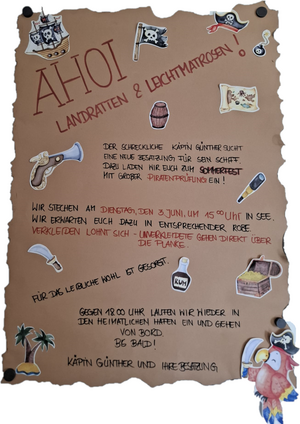 AHOI
LANDRATTEN & LEICHTMATROSEN!
DER SCHRECKLICHE KÄPT'N GÜNTHER SUCHT
EINE NEUE BESATZUNG FÜR SEIN SCHIFF.
DAZU LADEN WIR EUCH ZUM SOMMERFEST
MIT GROßER PIRATENPRÜFUNG EIN!
WIR STECHEN AM DIENSTAG, DEN 3. JUNI, UM 15 00 UHR IN SEE.
WIR ERWARTEN EUCH DAZU IN ENTSPRECHENDER ROBE.
VERKLEIDEN LOHNT SICH - UNVERKLEIDETE GEHEN DIREKT ÜBER
DIE PLANKE.
FÜR DAS LEIBLICHE WOHL IST GESORGT.
RUM
GEGEN 18 00 UHR LAUFEN WIR WIEDER IN
DEN HEIMATLICHEN HAFEN EIN UND GEHEN
VON BORD.
BIS BALD!
KÄPT'N GÜNTHER UND IHRE BESATZUNG